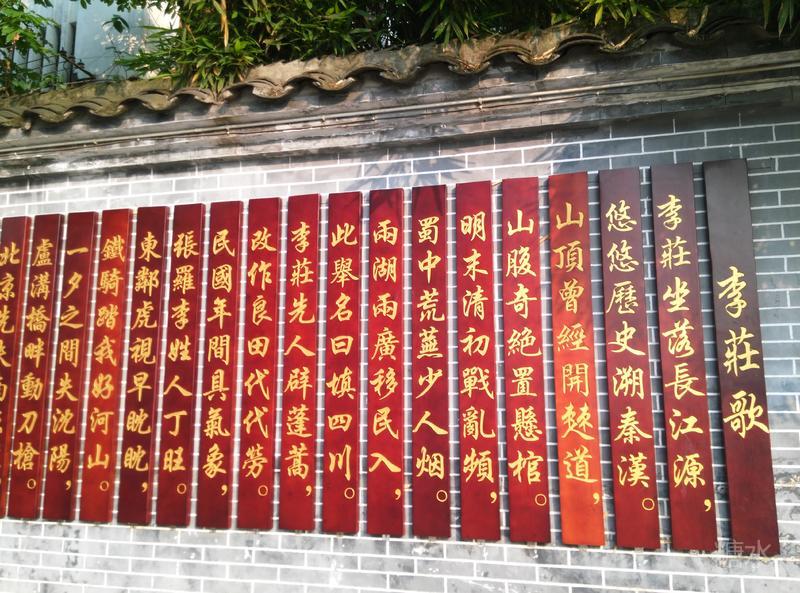 李莊歌
李莊坐落長江源，
悠悠歷史溯秦漢。
山頂曾經開僰道，
山腹奇絕置懸棺。
明末清初戰亂頻，
蜀中荒蕪少人烟。
兩湖兩廣移民入，
此舉名曰填四川。
李莊先人辟蓬蒿，
改作良田代代勞。
民國年間具氣象，
張羅李姓人丁旺。
東鄰虎視早眈眈，
鐵騎踏我好河山。
一夕之間失沈陽，
盧溝橋畔動刀槍。
北京先失
糖水